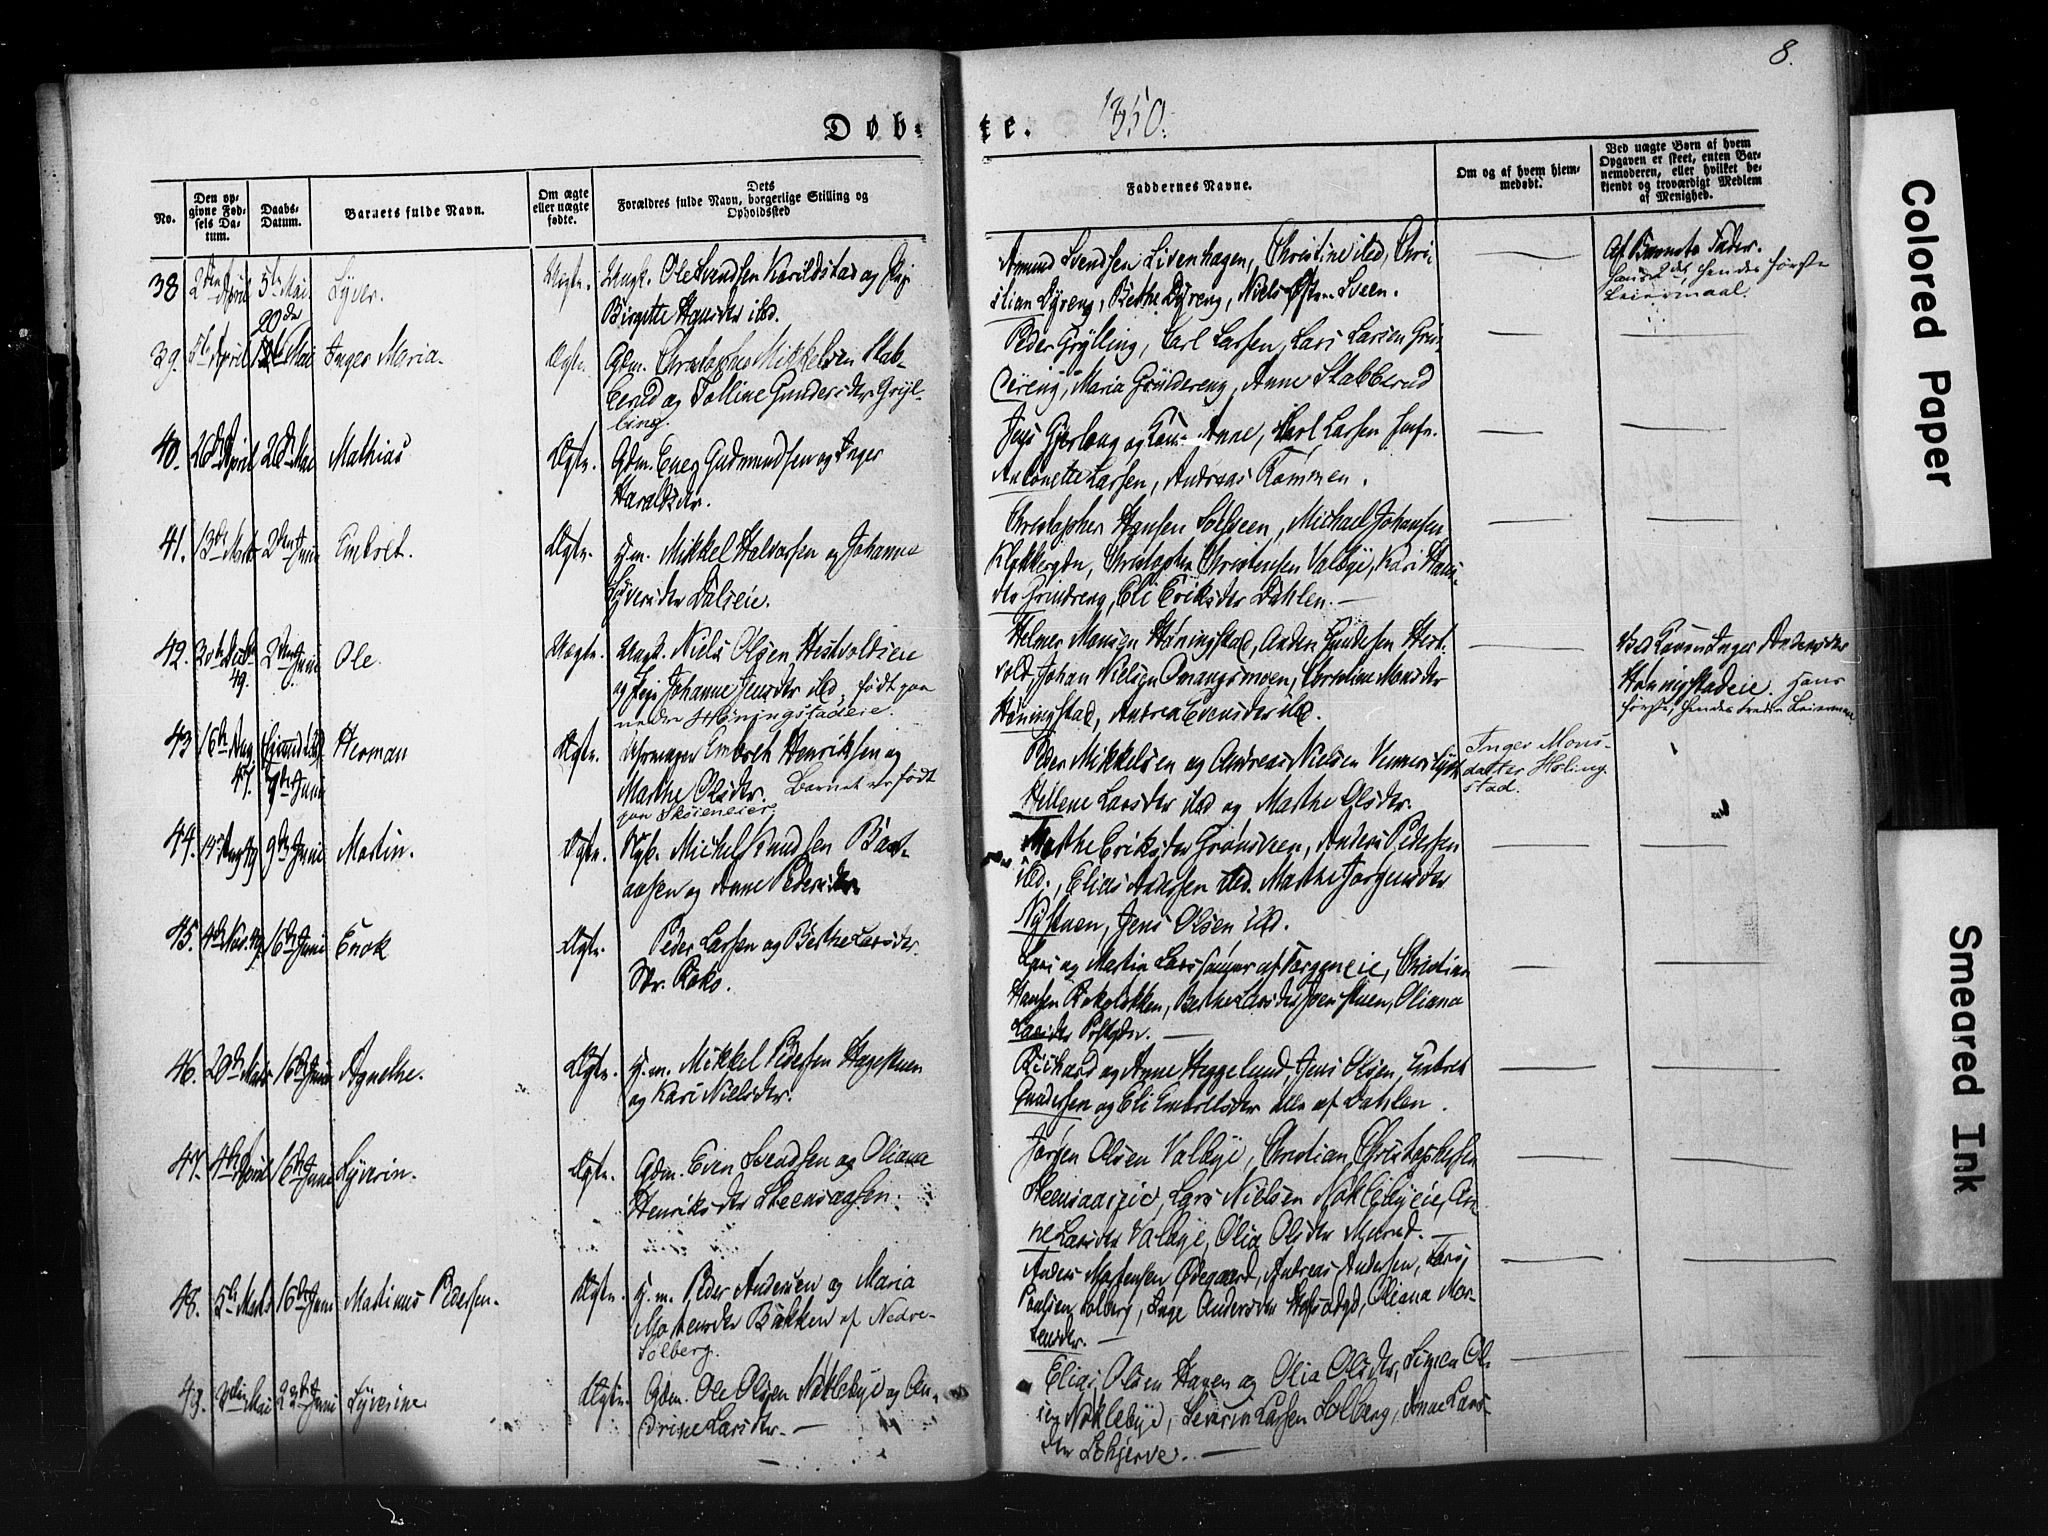 8.
Døb-
te. 1850.
No.
Den op-
givne Fød-
sels Da-
tum.
Daabs-
Datum.
Barnets fulde Navn.
Om ægte
eller uægte
fødte.
Dets
Forældres fulde Navn, borgerlige Stilling og
Opholdssted
Faddernes Navne.
Om og af hvem hjem-
medøbt.
Ved uægte Børn af hvem
Opgaven er skeet, enten Bar-
nemoderen, eller hvilket be-
kjendt og troværdigt Medlem
af Menighed.
38 2den April 5te Mai Syver. Uægte. Ungk. Ole Svendsen Karildstad og Pige
Birgitte Hansdr ibd.
Amund Svendsen Livenhagen, Christine ibd, Chri-
stian Dyreng, Berthe Dyreng, Niels Østen Sveen.
Af Barnets Fader.
Hans 2det, hendes første
Leiermaal.
39. April 20de Mai Inger Maria. Ægte. Gdm. Christopher Mikkelsen Stab-
berud og Tolline Gundersdr Grýl-
ling.
Peder Grýlling, Carl Larsen, Lars Larsen Grin-
dereng, Maria Gründereng, Anne Stabberud
40. 26de April 26de Mai Mathias Ægte. Gdm. Even Gudmundsen og Inger
Haraldsdr.
Jens Gjerlaug og Kone Anne, Karl Larsen
Antonette Larsen, Andreas Rømmen.
41. 13de Marts 2den Juni Embret. Ægte. H.m. Mikkel Halvorsen og Johanne
Syversdr Dalseie.
Christopher Hansen Solsveen, Michael Johansen
Klokkergdn, Christopher Christensen Valbye, Kari Hans-
dr Grindreng, Eli Eriksdr Dahlen.
42. 30te Decbr 49. 2den Juni Ole. Uægte. Ungk. Niels Olsen Hestvoldseie
og Pige Johanne Jensdr ibd, født paa
nedre Høningstadeie.
Helmer Monsen Høningstad, Anders Gundersen Hest-
vold, Johan Nielsen Amangsmoen, Christine Monsdr
Høningstad, Andrea Evensdr ibd.
Ved Konen Inger Andersdr
Høningstadeie. Hans
første, hendes tredie Leiermaal
43 16de Aug. 47. 9de Juni Herman Ægte. Embret Henriksen og
Marthe Olsdr. Barnet er født
paa Skøieneier.
Peder Mikkelsen og Andreas Nielsen Vennersløst
Hellene Larsdr ibd og Marthe Olsdr.
Inger Mons-
datter Høning-
stad.
44. 14de Aug 49 9de Juni Martin. Ægte. Michel Knudsen Baat-
aasen og Anne Pedersdr
Marthe Eriksdr Grønsveen, Anders Pedersen
ibd., Elias Andersen ibd. Marthe Jørgensdr
Nystuen, Jens Olsen ibd.
45. 4de Nov. 49. 16de Juni Enok Ægte. Peder Larsen og Berthe Larsdr.
Str. Roko.
Lars og Martin Larssønner af Torgeneie, Christian
Hansen Rokoløkken, Berthe Larsdr Iverstuen, Oliana
Larsdr
46. 20de Marts 16de Juni Agnethe. Ægte. H.m. Mikkel Pedersen Hagestuen
og Kari Nielsdr.
Richard og Anne Heggelund, Jens Olsen, Embret
Gundersen og Eli Embretsdr alle af Dahlen.
47. 4de April 16de Juni Syverin. Ægte. Gdm. Even Svendsen og Oliana
Henriksdr Steensaasen.
Jørgen Olsen Valbye, Christian Christophersen
Steensaaseie, Lars Nielsen Nøklebyeie, An-
ne Larsdr Valbye, Olia Olsdr Morud.
48. 5te Marts 16de Juni Martinus Pedersen. Ægte. H.m. Peder Andersen og Maria
Mortensdr Bakken af Nedre-
Solberg.
Anders Mortensen Ødegaard, Andreas Andersen, Lars
Poulsen Solberg, Inge Andersdr, Oliana Mor-
tensdr.
49. 3die Mai 23de Juni Syverine Ægte. Gdm. Ole Olsen Nøklebye og An-
drine Larsdr.
Elias Olsen Hagen og Olia Olsdr, Simen Ol-
sen Nøklebye, Severin Larsen Solberg, Anne Lars-
dr Lohjerve.
Colored Paper
Smeared Ink